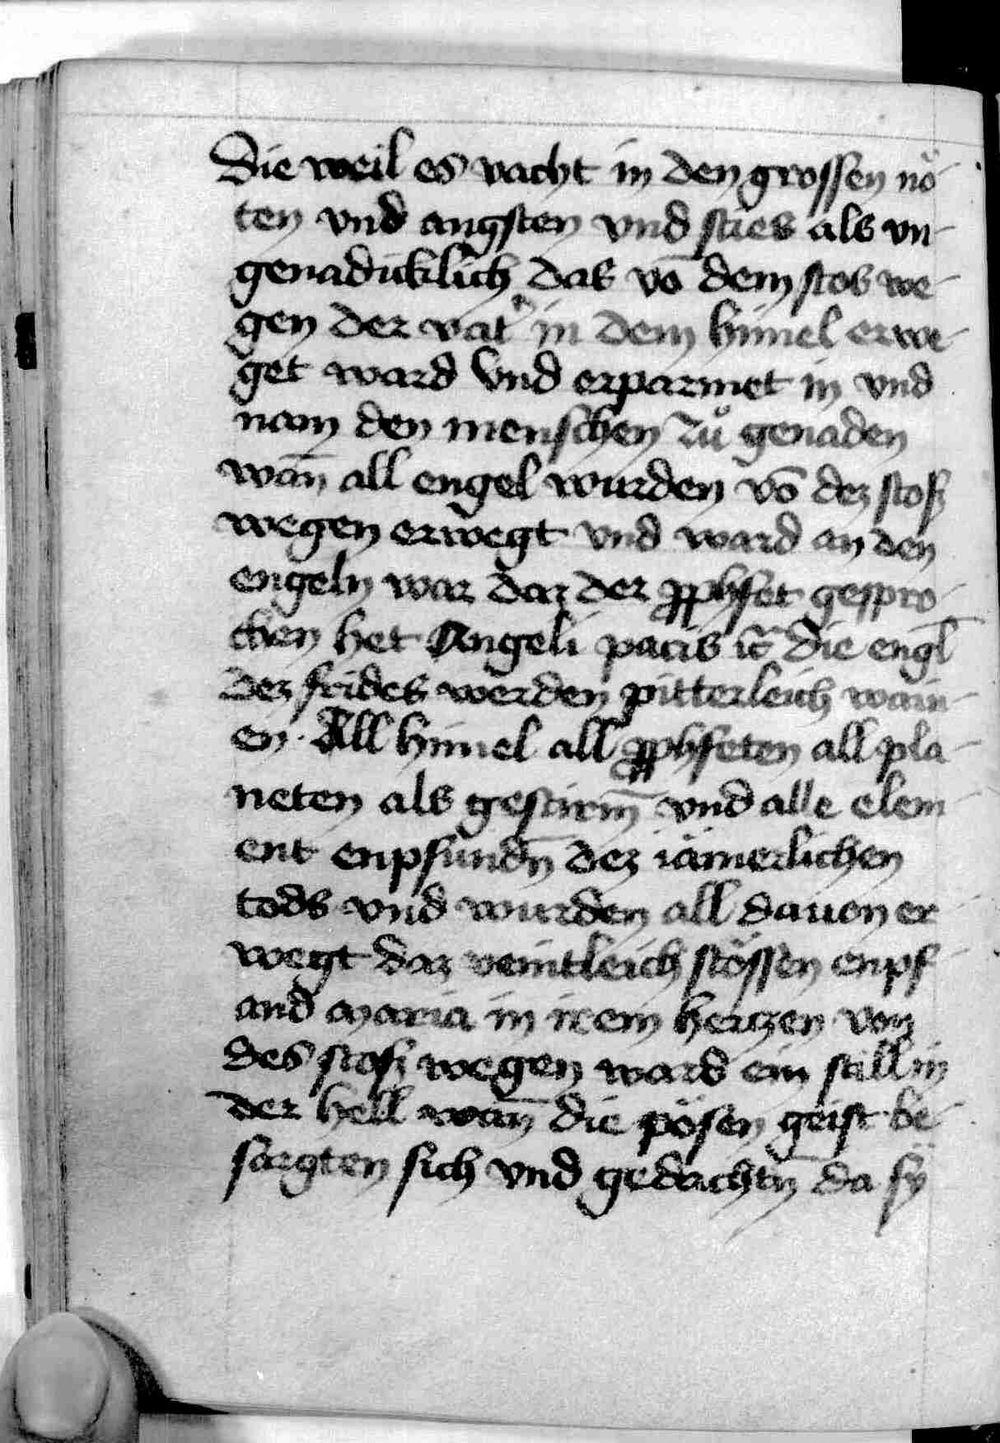 Die weil es vacht in den grossen nö-
ten vnd angsten vnd sties als vn-
genadicklich das vō dem stos we-
gen der vatˀ in dem himel erwe-
get ward Vnd erparmet in vnd
nam den menschen zů genaden
wañ all engel wurden vō dez stoß
wegen erwegt vnd ward an den
engeln war daz der ꝓphet gespro-
chen het Angeli pacis die engl̄
dez frides werden pitterleich wain-
en. All himel all ꝓpheten all pla-
neten als gestirm̄ vnd alle elem-
ent enpfundn̄ dez iämerlichen
tods vnd wurden all dauon er-
wegt daz veintleich stössen enpf-
and Maria in irem hertzen von
des stoß wegen ward ein still in
der hell wañ die pösen geist be-
sorgten sich vnd gedachtn̄ da sy